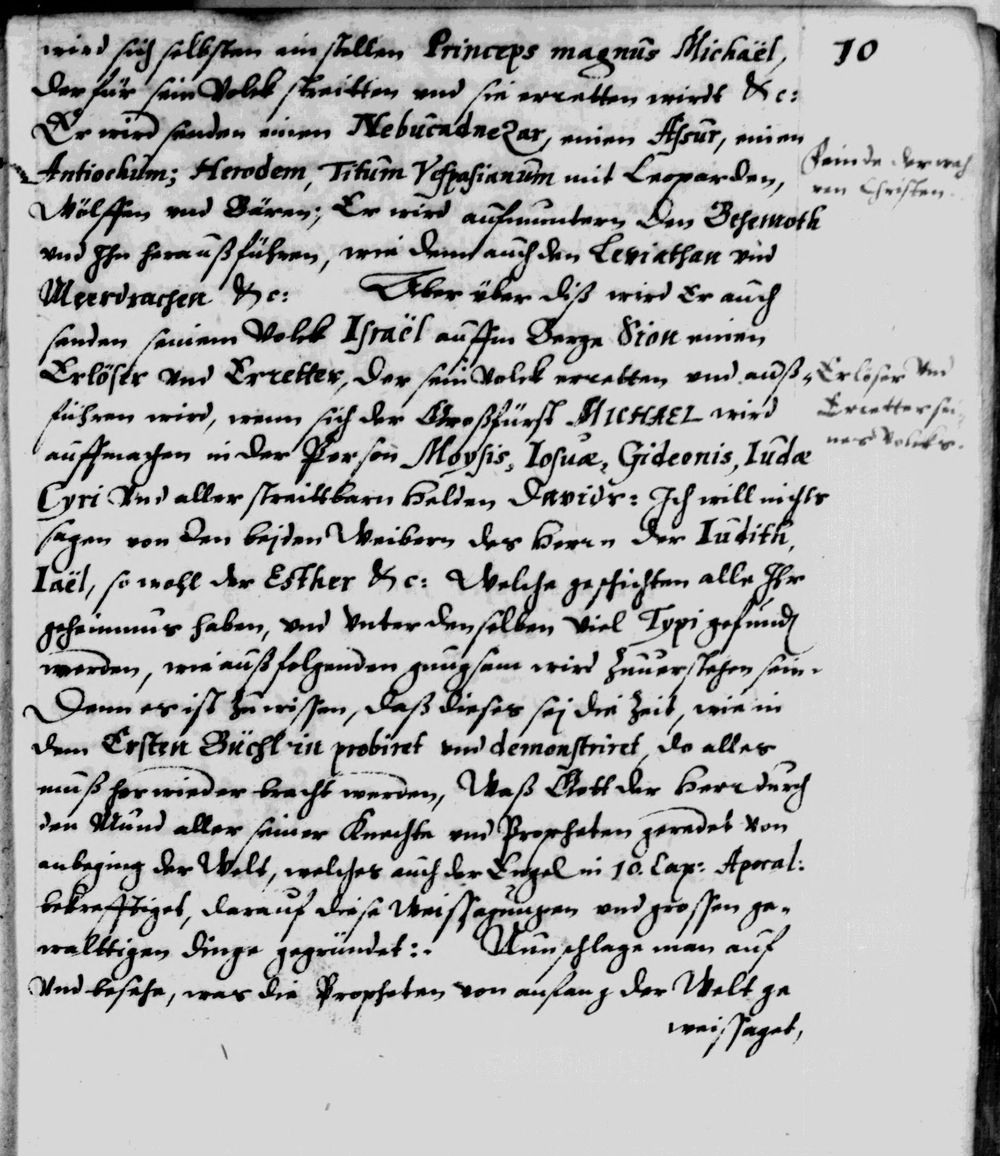 10
wird sich selbsten einstellen Princeps magnus Michaël,
der für sein Volck streitten und sie erretten wirdt &c:
Er wird senden einen NebucadneZar, einen Assur, einen
Antiochum; Herodem, Titum Vespasianum mit Leoparden,
Wölffen und Bären; Er wird aufmuntern den Behemoth
und Ihn heraußführen, wie denn auch den Leviathan und
Meerdrachen &c: Aber über diß wird Er auch
senden seinem Volck Israël auffm Berge Sion einen
Erlöser Und Erretter, der sein Volck erretten und auß-
führen wird, wenn sich der Großfürst MICHAEL wird
auffmachen in der Person Moysis, Iosuæ, Gideonis, Iudæ
Cyri Und aller streittbarn Helden Davids: Ich will nichts
sagen von den beyden Weibern des Herrn der Iudith,
Iaël, so wohl der Esther &c: Welche geschichten alle Ihr
geheimnus haben, und Unter denselben Viel Typi gefunden
werden, wie auß folgenden gnugsam wird Zuuerstehen sein.
Denn es ist Zuwissen, daß dieses sey die Zeit, wie in
dem Ersten Büchlin probiret und demonstriret, do alles
muß herwieder bracht werden, Waß Gott der Herr durch
den Mund aller seiner Knechte und Propheten geredet Von
anbeging der Welt, welches auch der Engel in 10. Cap: Apocal:
bekrefftiget, darauf diese Weissagungen und grossen ge-
walttigen dinge gegründet:. Nun schlage man auf
Und besehe, was die Propheten von anfang der Welt ge
weissaget,
Feinde der wah
ren Christen.
Erlöser Und
Erretter sei
nes Volcks.